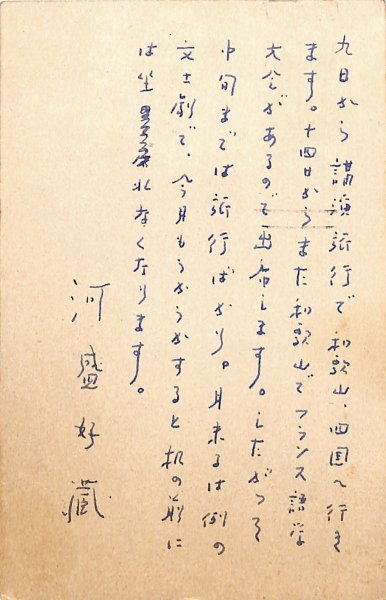 九日から講演旅行で和歌山、四国へ行き
ます。十四日からまた和歌山でフランス語学
大会があるので出席します。したがつて
中旬までは旅行ばかり。月末には例の
文士劇で、今月もうかうかすると机の前に
は坐れなくなります。
河盛好蔵